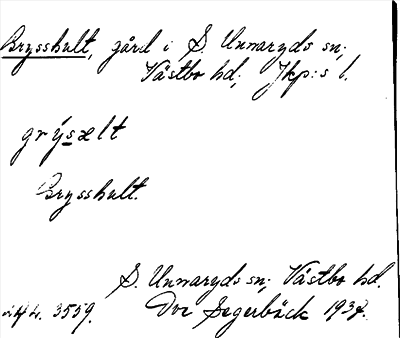 Brysshult, gård i S. Unnaryds sn;
Västbo hd; Jkp:s l.
grýsælt
Brysshult.
S. Unnaryds sn; Västbo hd.
3559. Segerbäck